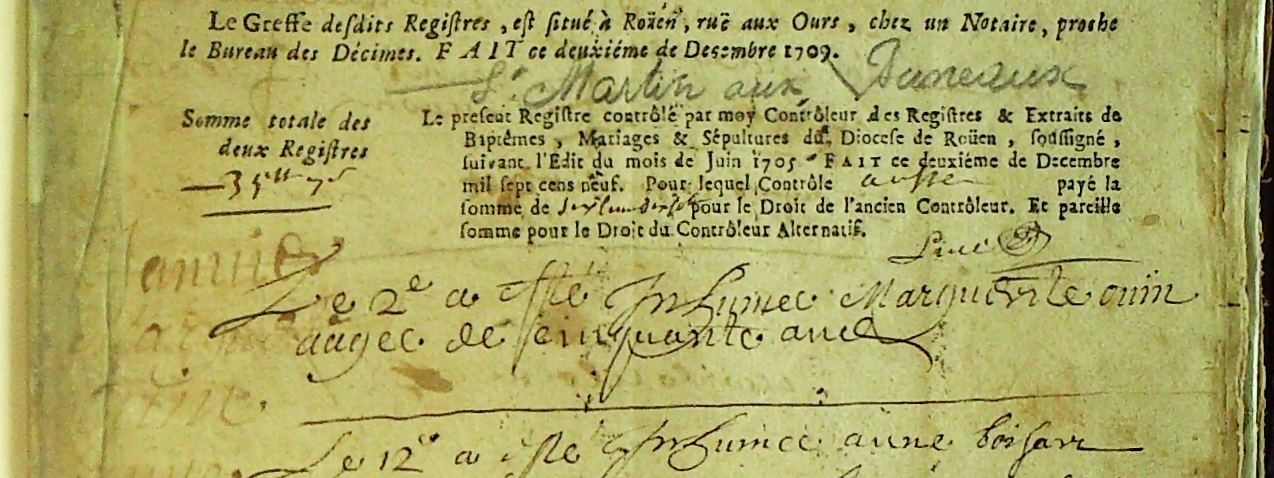 Le Greffe desdits Registres, est situé à Roüen, ruë aux Ours, chez un Notaire, proche
le Bureau des Décimes. FAIT ce deuxiéme de Decembre 1709.
St Martin aux Buneaux
Somme totale des
deux Registres
Le present Registre contrôlé par moy Contrôleur des Registres & Extraits de
Baptêmes, Mariages & Sépultures du Diocese de Roüen, soussigné,
suivant l'Edit du mois de Juin 1705 FAIT ce deuxiéme de Decembre
mil sept cens neuf. Pour lequel Contrôle payé la
somme de pour le Droit de l'ancien Contrôleur. Et pareille
somme pour le Droit du Contrôleur Alternatif.
Janvier
Le 2e a esté Inhumee Marguerite ouin
aagee de seinquante ance
Le 12e a esté Inhumee anne